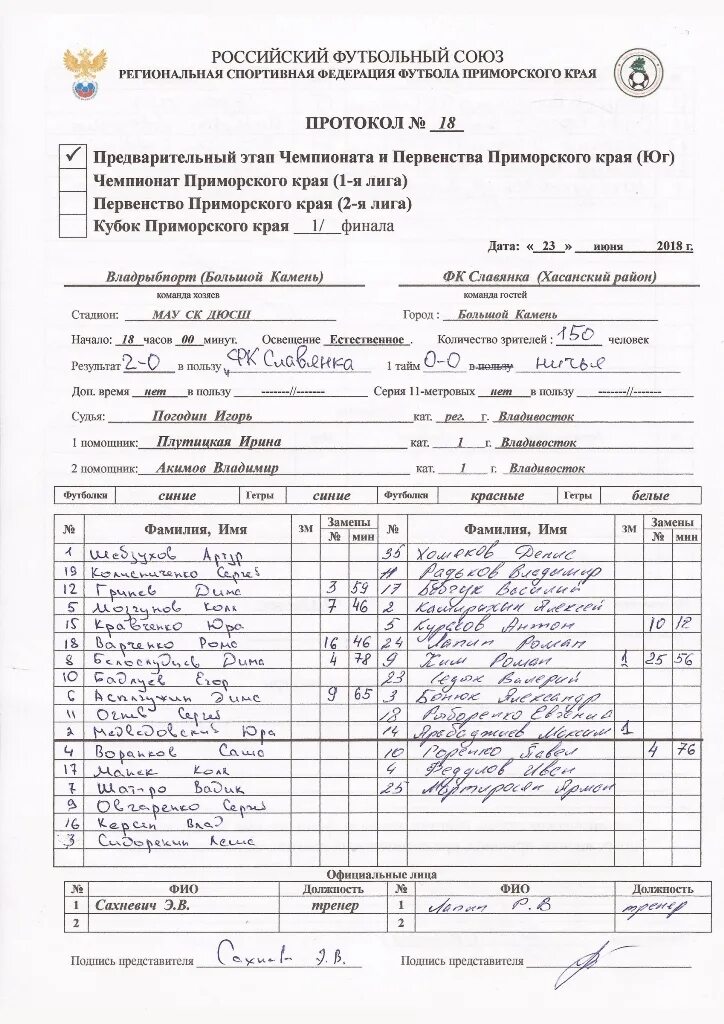 РОССИЙСКИЙ ФУТБОЛЬНЫЙ СОЮЗ
РЕГИОНАЛЬНАЯ СПОРТИВНАЯ ФЕДЕРАЦИЯ ФУТБОЛА ПРИМОРСКОГО КРАЯ
ПРОТОКОЛ № 18
✓ Предварительный этап Чемпионата и Первенства Приморского края (Юг)
Чемпионат Приморского края (1-я лига)
Первенство Приморского края (2-я лига)
Кубок Приморского края __1/__финала
Дата: « 23 » июня 2018 г.
Владрыбпорт (Большой Камень) ФК Славянка (Хасанский район)
команда хозяев команда гостей
Стадион: МАУ СК ДЮСШ Город : Большой Камень
Начало: 18 часов 00 минут. Освещение Естественное . Количество зрителей : 150 человек
Результат 2-0 в пользу ФК Славянка 1 тайм 0-0 в пользу ничья
Доп. время нет в пользу -------//------- Серия 11-метровых нет в пользу -------//-------
Судья: Погодин Игорь кат. рег. г. Владивосток
1 помощник: Плутицкая Ирина кат. 1 г. Владивосток
2 помощник: Акимов Владимир кат. 1 г. Владивосток
Футболки синие Гетры синие Футболки красные Гетры белые
№ Фамилия, Имя ЗМ Замены № Фамилия, Имя ЗМ Замены
№ мин № мин
1 Шебзухов Артур 35 Хомяков Денис
19 Колисниченко Сергей 11 Радьков Владимир
12 Гринев Дима 3 59 17 Бовчук Василий
5 Моргунов Коля 7 46 2 Алексей
15 Кравченко Юра 5 Курасов Антон 10 12
18 Варченко Рома 16 46 24 Лапин Роман
8 Белослудцев Дима 4 78 9 Ким Роман 1 25 56
10 Бадлуев Егор 23 Седых Валерий
6 Дима 9 65 3 Бонюк Александр
11 Огнев Сергей 18 Рыборенко Евгений
2 Медведовский Юра 14 Ярабаджиев Максим 1
4 Воранков Саша 10 Горенко Павел 4 76
17 Манек Коля 4 Федулов Иван
7 Шатрo Вадик 25 Мартиросян Арман
9 Овчаренко Сергей
16 Керсен Влад
3 Сидорекин Леша
Официальные лица
№ ФИО Должность № ФИО Должность
1 Сахневич Э.В. тренер 1 Лапин Р.В тренер
2 2
Подпись представителя Сахнев Э.В. Подпись представителя